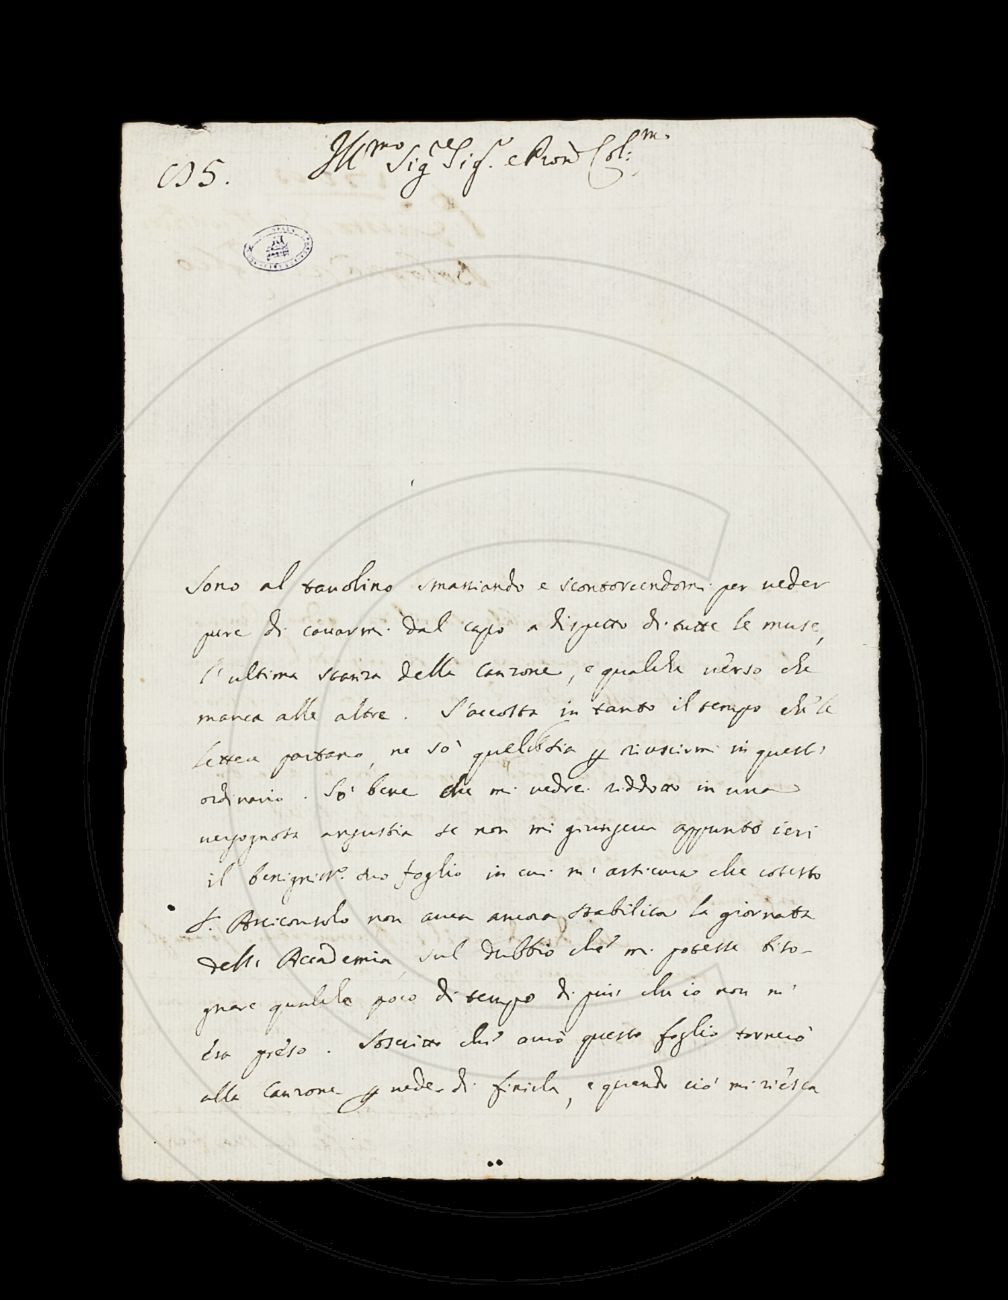 95.
Ill.mo Sig.re Sig.r e Pron Col.mo
Sono al tavolino smaniando e scontorcendomi per veder
pure di cavarmi dal capo a dispetto di tutte le muse,
l'ultima stanza della Canzone, e qualche verso che
manca alle altre. S'accosta in tanto il tempo ché le
lettere partano, ne so' quel ch sia p riuscirmi in quest'
ordinario. So' bene che mi vedrei riddotto in una
vergognosa angustia se non mi giungeva appunto ieri
il benigniss.o suo foglio in cui m'assicura che cotesto
S. Arciconsolo non avea ancora stabilita la giornata
dell'Accademia, sul dubbio ché mi potesse biso-
gnare qualche poco di tempo di più che io non m'
era preso. Soscritto ché avrò questo foglio tornerò
alla Canzone p veder di finirla, e quando ciò mi riesca